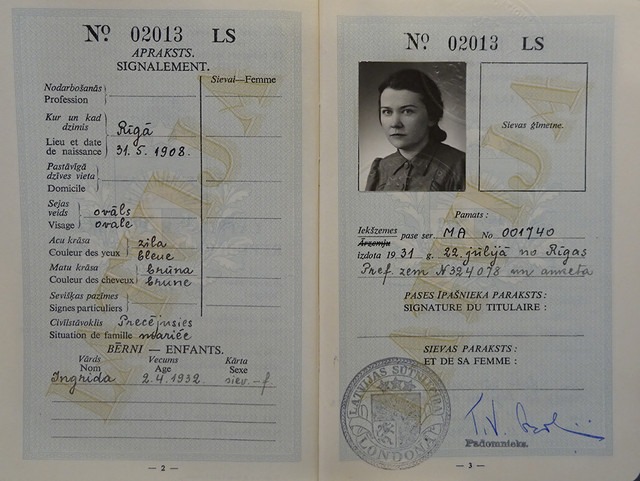 Nº 02013 LS
APRAKSTS.
SIGNALEMENT.
Sievai—Femme
Nodarbošanās
Profession
Kur un kad
dzimis
Rīgā
Lieu et date
de naissance
31. 5. 1908.
Pastāvīgā
dzīves vieta
Domicile
Sejas
veids
ovāls
Visage
ovale
Acu krāsa
zila
Couleur des yeux
bleue
Matu krāsa
brūna
Couleur des cheveux
brune
Sevišķas pazīmes
Signes particuliers
Civīlstāvoklis
Precējusies
Situation de famille
mariée
BĒRNI — ENFANTS.
Vārds Vecums Kārta
Nom Age Sexe
Ingrīda 2. 4. 1932. siev. - f
— 2 —
Nº 02013 LS
Sievas ģīmetne.
Pamats:
Iekšzemes pase ser. MA No 001740
Ārzemju
izdota 1931 g. 22. jūlijā no Rīgas
Pref. zem N324078 un anketa
PASES ĪPAŠNIEKA PARAKSTS:
SIGNATURE DU TITULAIRE:
SIEVAS PARAKSTS:
ET DE SA FEMME:
LATVIJAS SŪTNIECĪBA
LONDONĀ
Padomnieks.
— 3 —
LATVIJA
LATVIJA